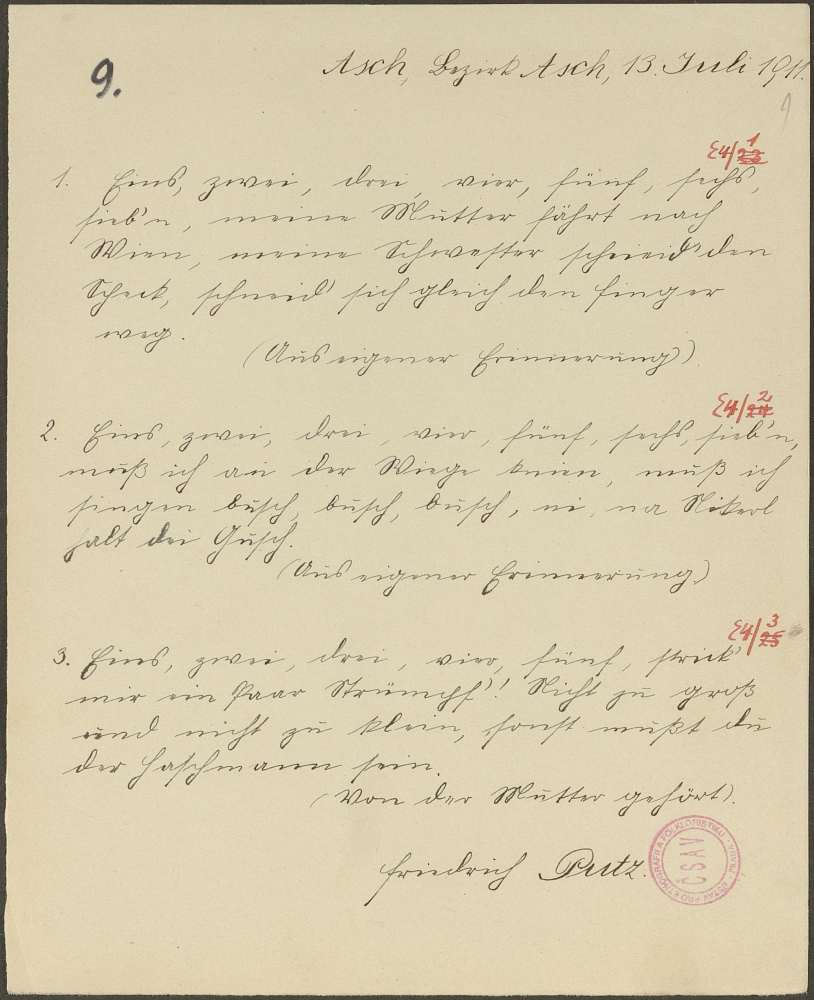 9.
Asch, Bezirk Asch, 13. Juli 1911.
E4/1 23
1. Eins, zwei, drei, vier, fünf, sechs,
sieb'n, meine Mutter fährt nach
Wien, meine Schwester schneid' den
Scheck, schneid' sich gleich den Finger
weg.
(Aus eigener Erinnerung.)
E4/2 24
2. Eins, zwei, drei, vier, fünf, sechs, sieb'n,
muß ich an der Wiege knien, muß ich
singen busch, busch, busch, ni, na Nikerl
halt dei Gusch.
(Aus eigener Erinnerung.)
E4/3 25
3. Eins, zwei, drei, vier, fünf, strick'
mir ein Paar Strümpf'! Nicht zu groß
und nicht zu klein, sonst mußt du
der Haschmann sein.
(Von der Mutter gehört).
Friedrich Putz.
ÚSTAV PRO ETHNOGRAFII A FOLKLORISTIKU · PRAHA ·
ČSAV